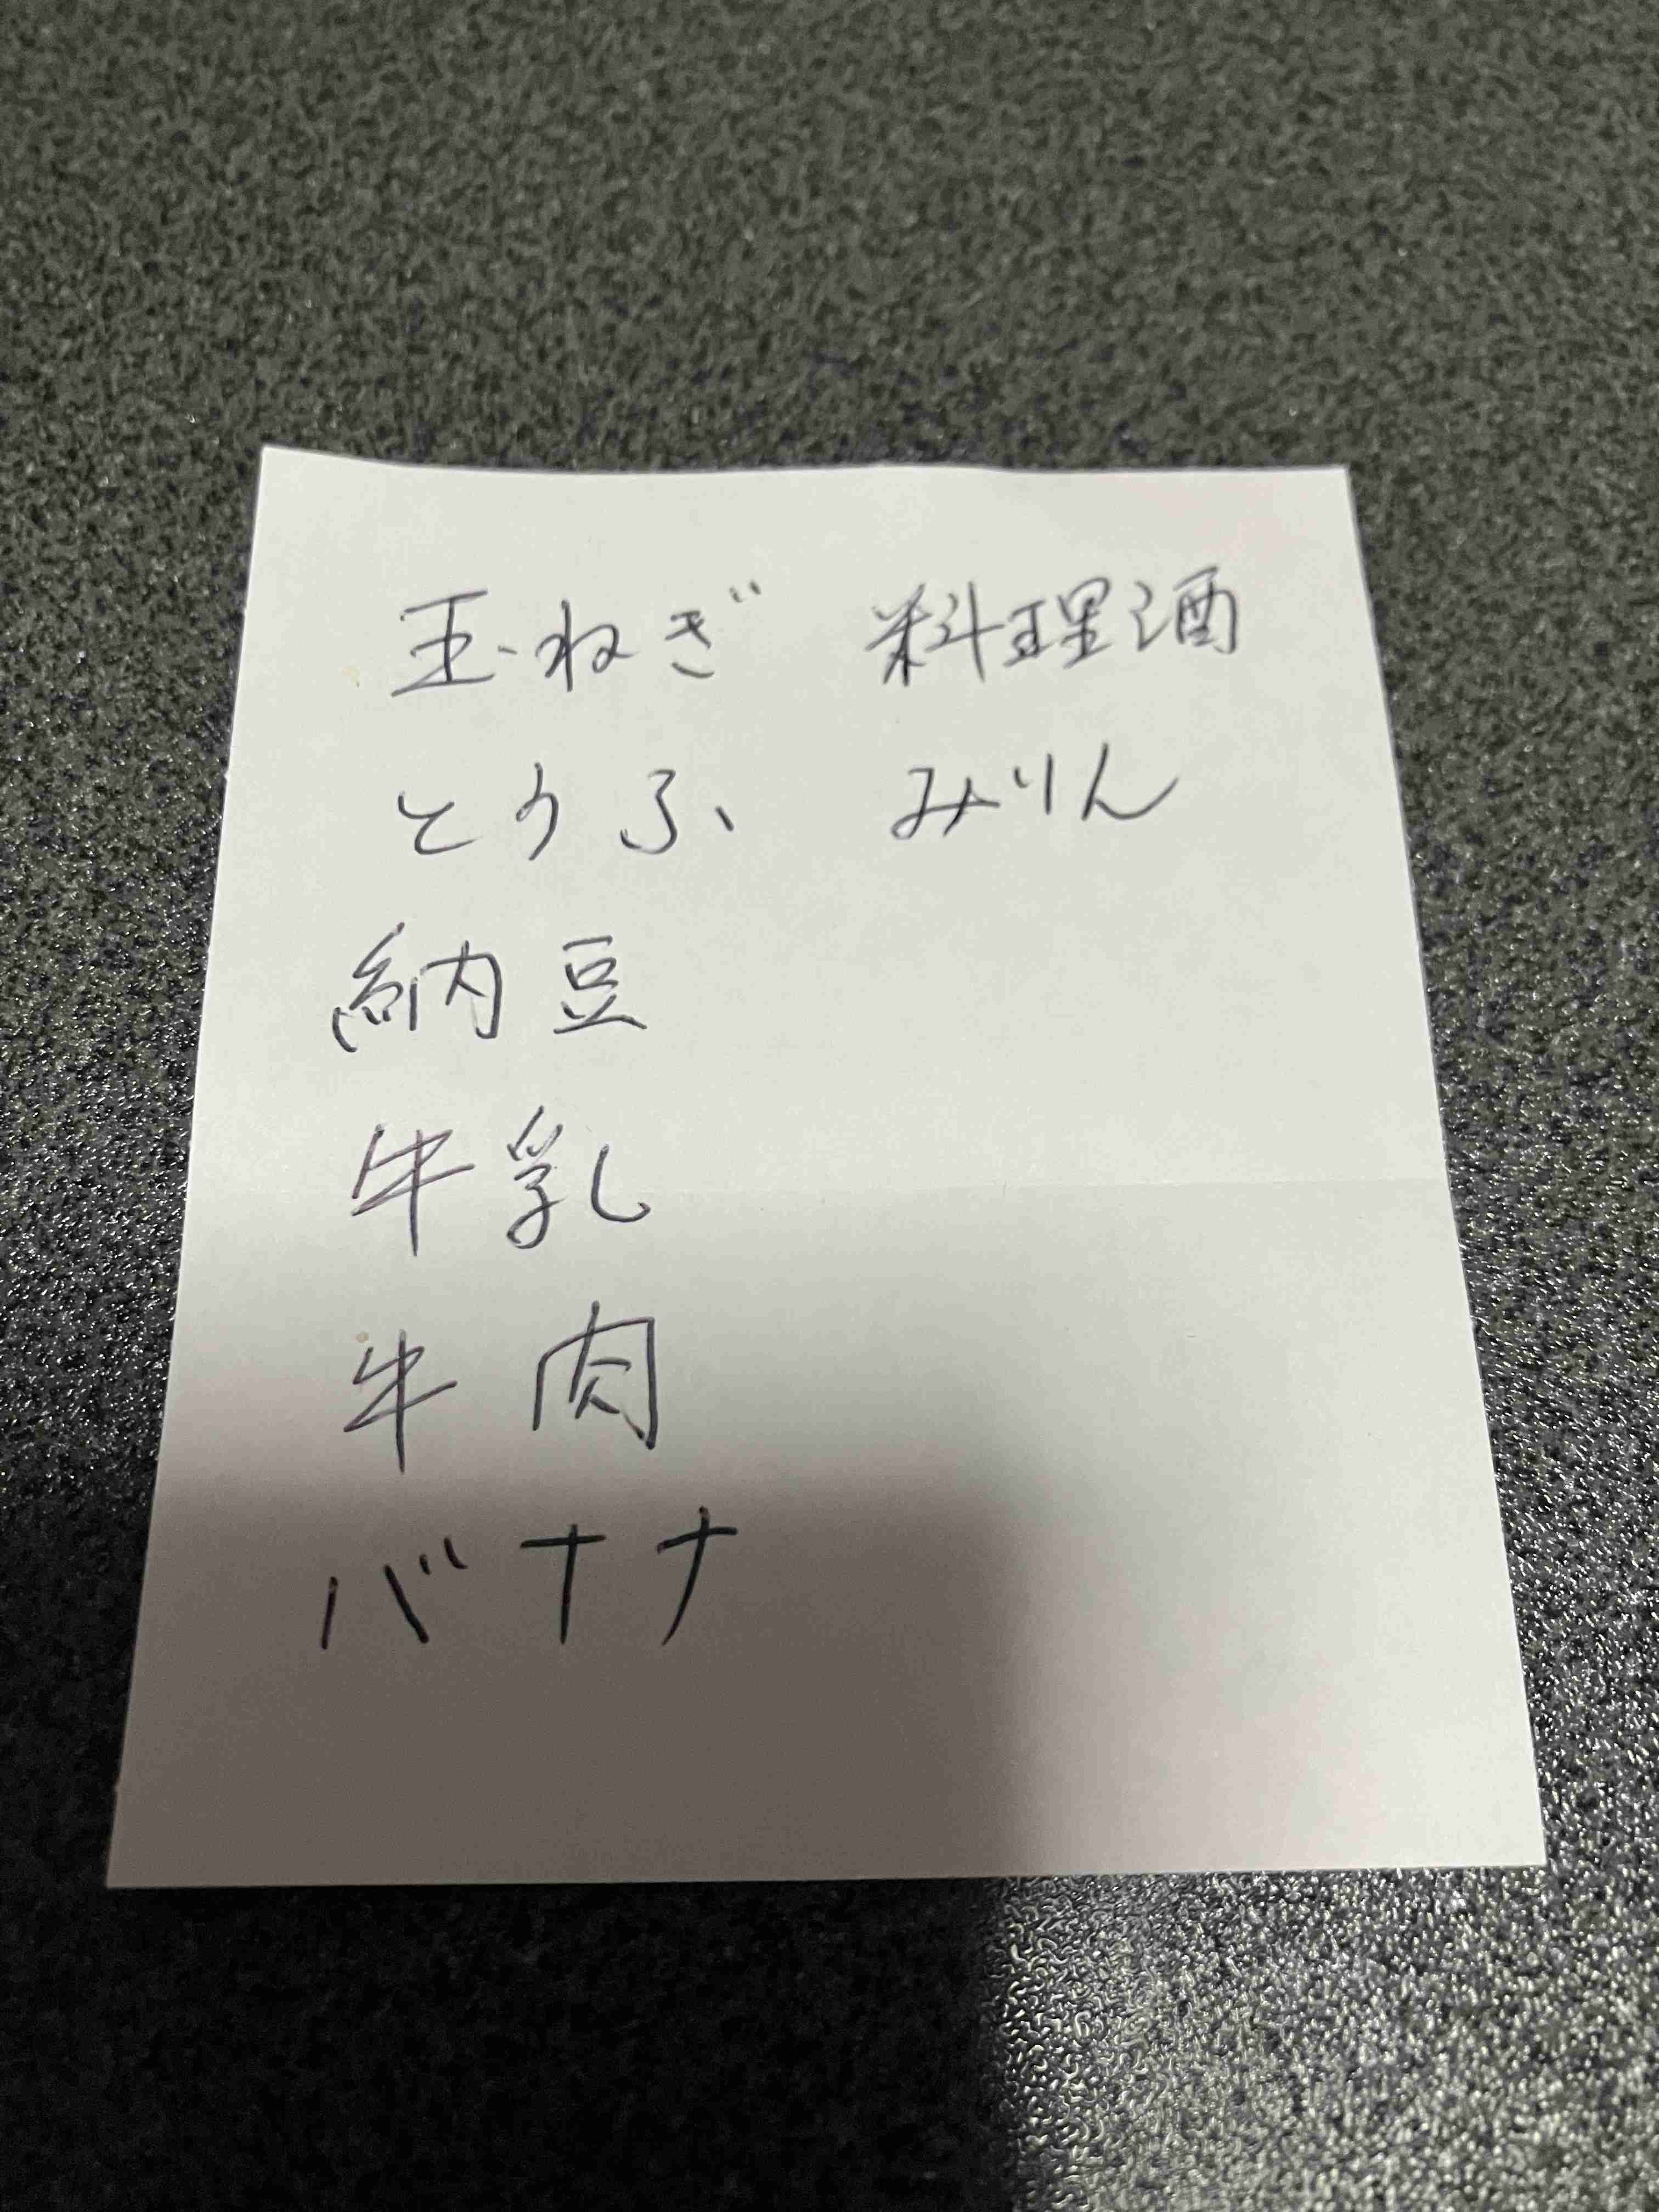 玉ねぎ 料理酒
とうふ みりん
納豆
牛乳
牛肉
バナナ